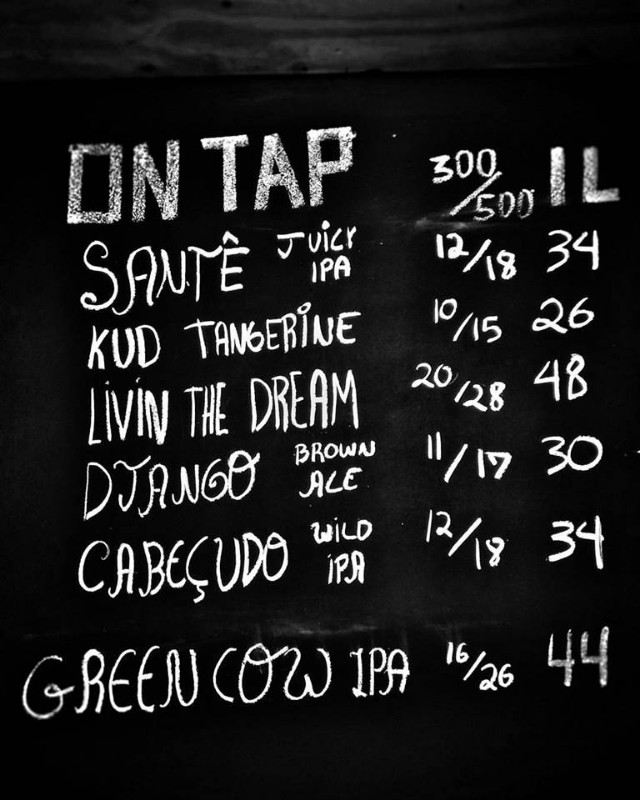 ON TAP 300/500 1L
SANTÊ JUICY IPA 12/18 34
KUD TANGERINE 10/15 26
LIVIN THE DREAM 20/28 48
DJANGO BROWN ALE 11/17 30
CABEÇUDO WILD IPA 12/18 34
GREEN COW IPA 16/26 44